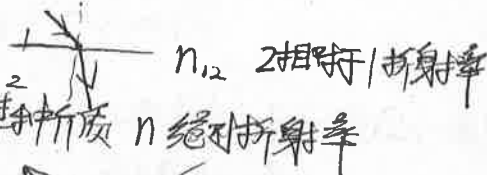 1
n₁₂ 2相对于1折射率
2
折质 n 绝对折射率